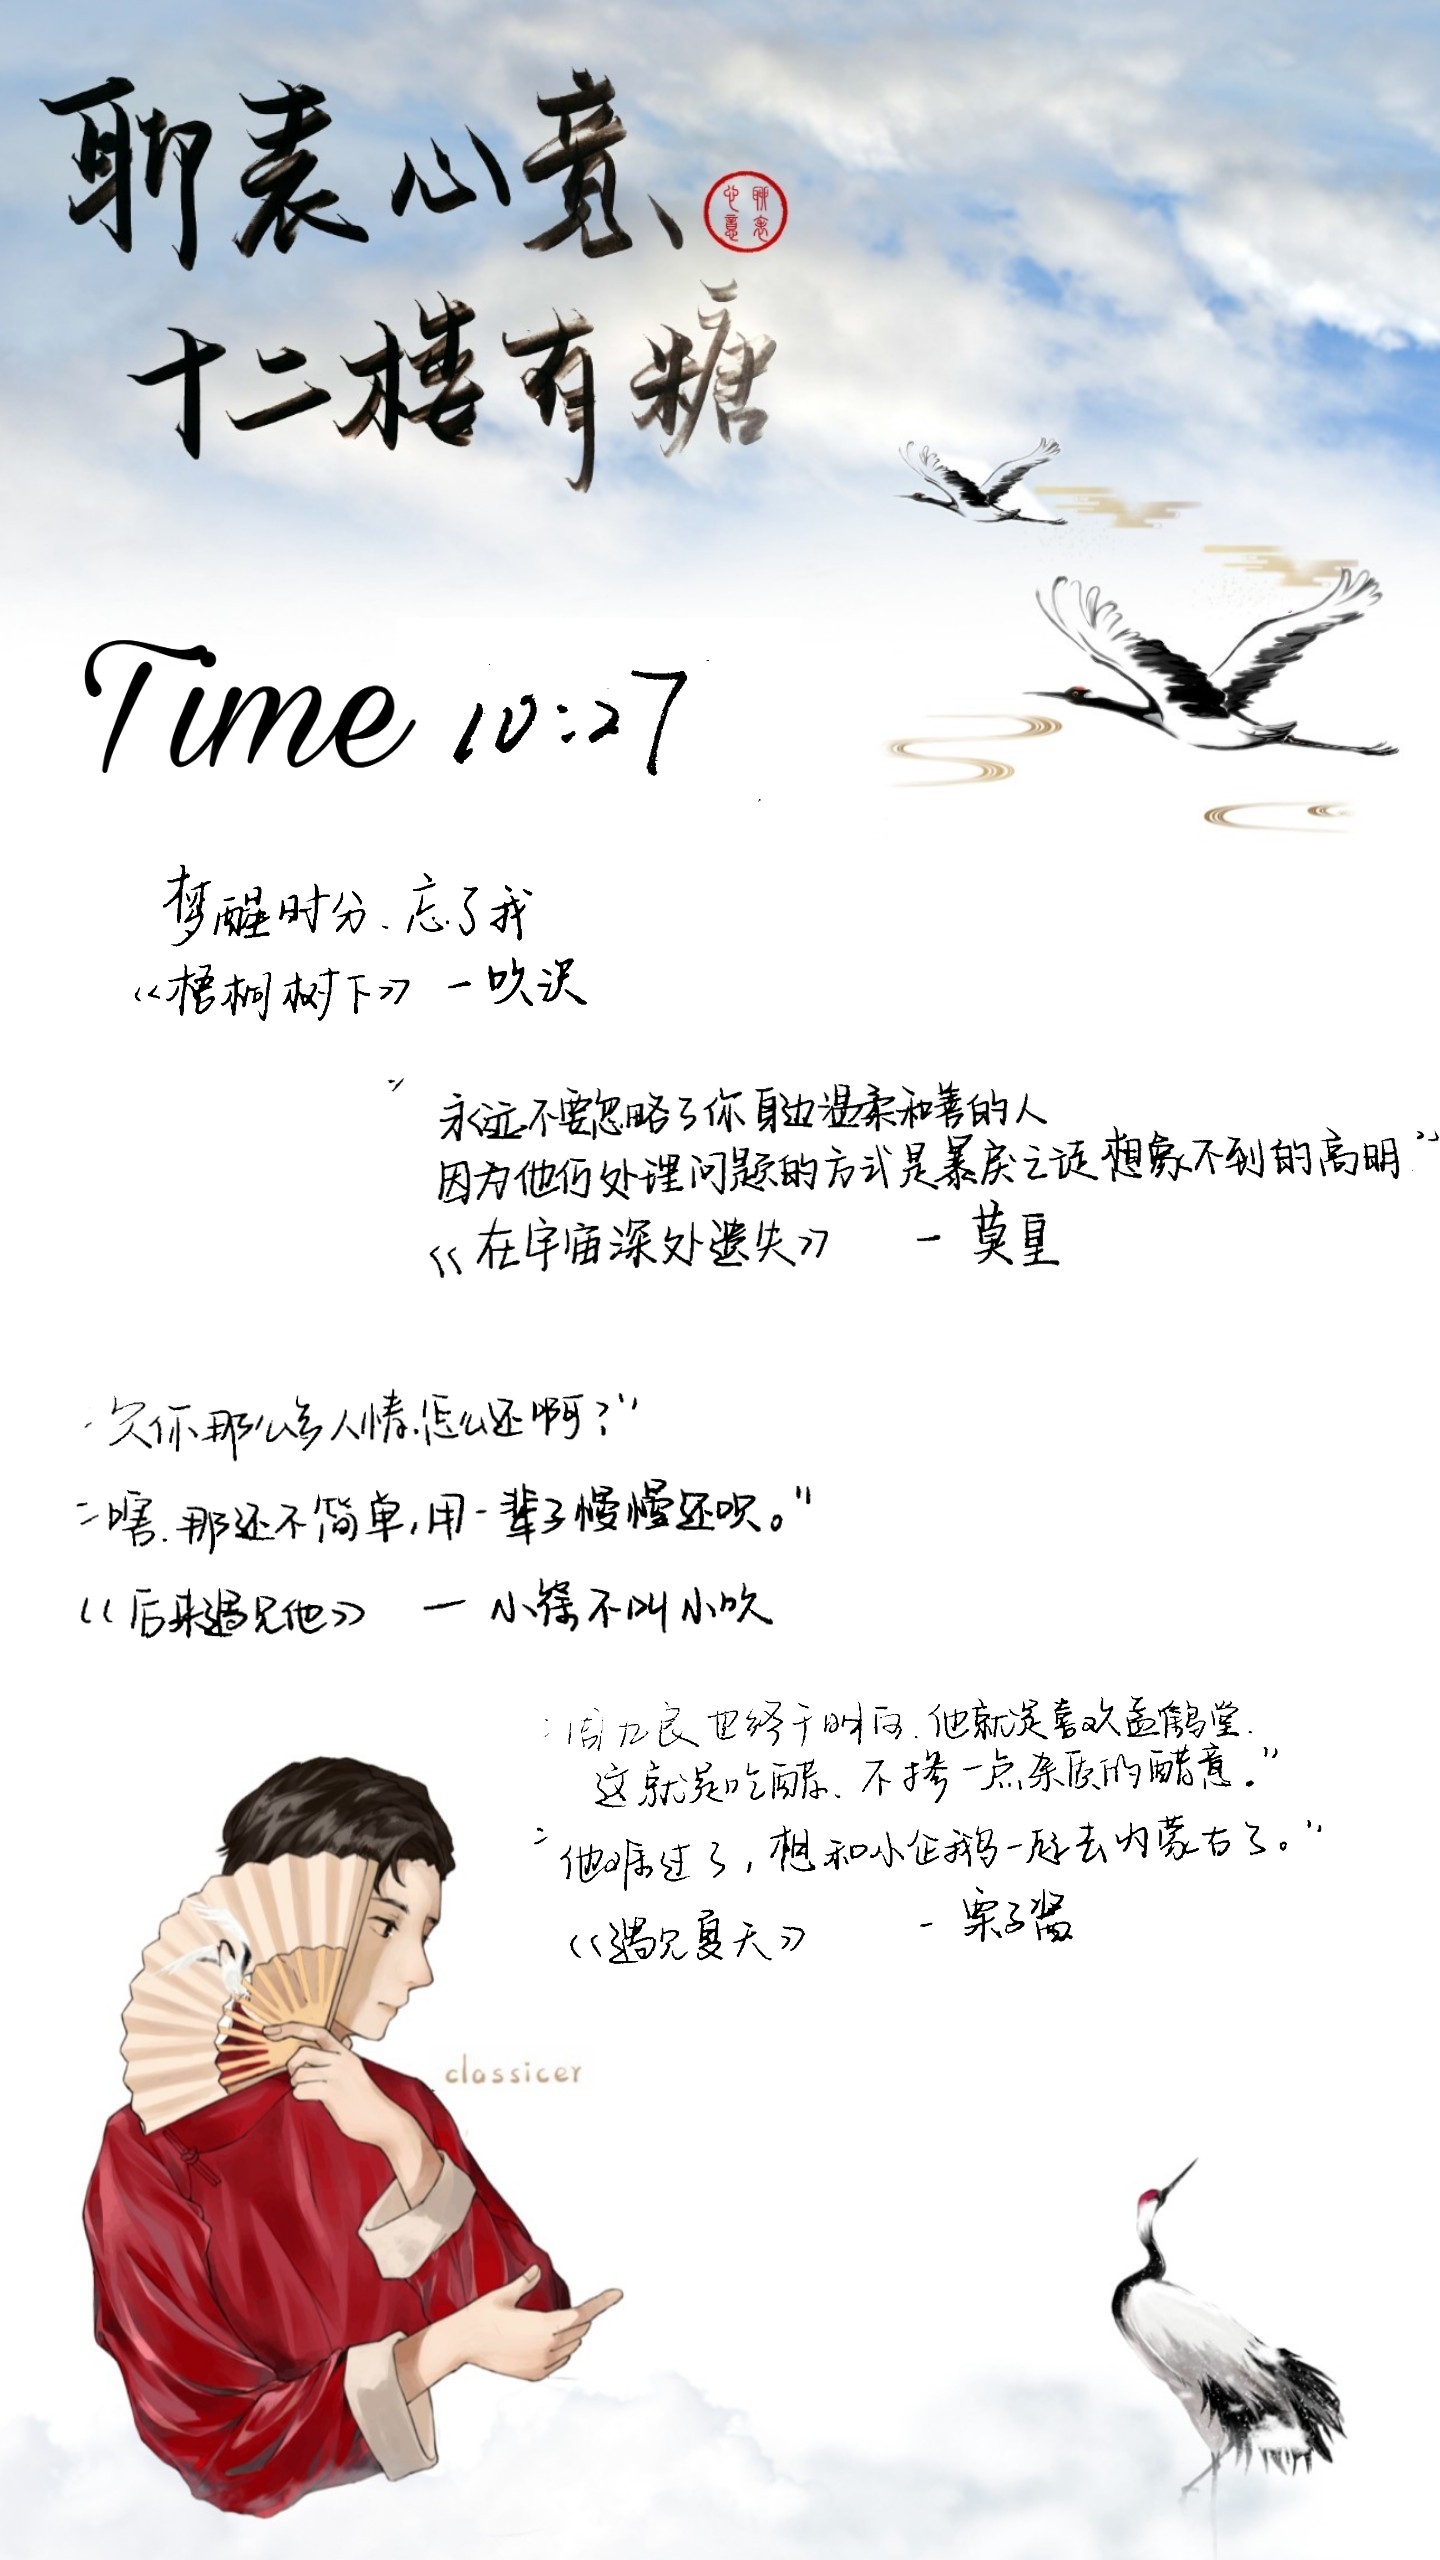 聊表心意、
聊表心意
十二楼有糖
Time 10:27
梦醒时分、忘了我
《梧桐树下》 — 吹沢
"永远不要忽略了你身边温柔和善的人
因为他们处理问题的方式是暴戾之徒想象不到的高明"
《在宇宙深处遗失》 — 莫里
"欠你那么多人情,怎么还啊?"
"嗐、那还不简单,用一辈子慢慢还呗。"
《后来遇见他》 — 小篠不叫小吹
"周九良也终于明白、他就是喜欢孟鹤堂、
这就是吃醋、不掺一点杂质的醋意。"
"他难过了,想和小企鹅一起去内蒙古了。"
《遇见夏天》 — 栗子酱
classicer